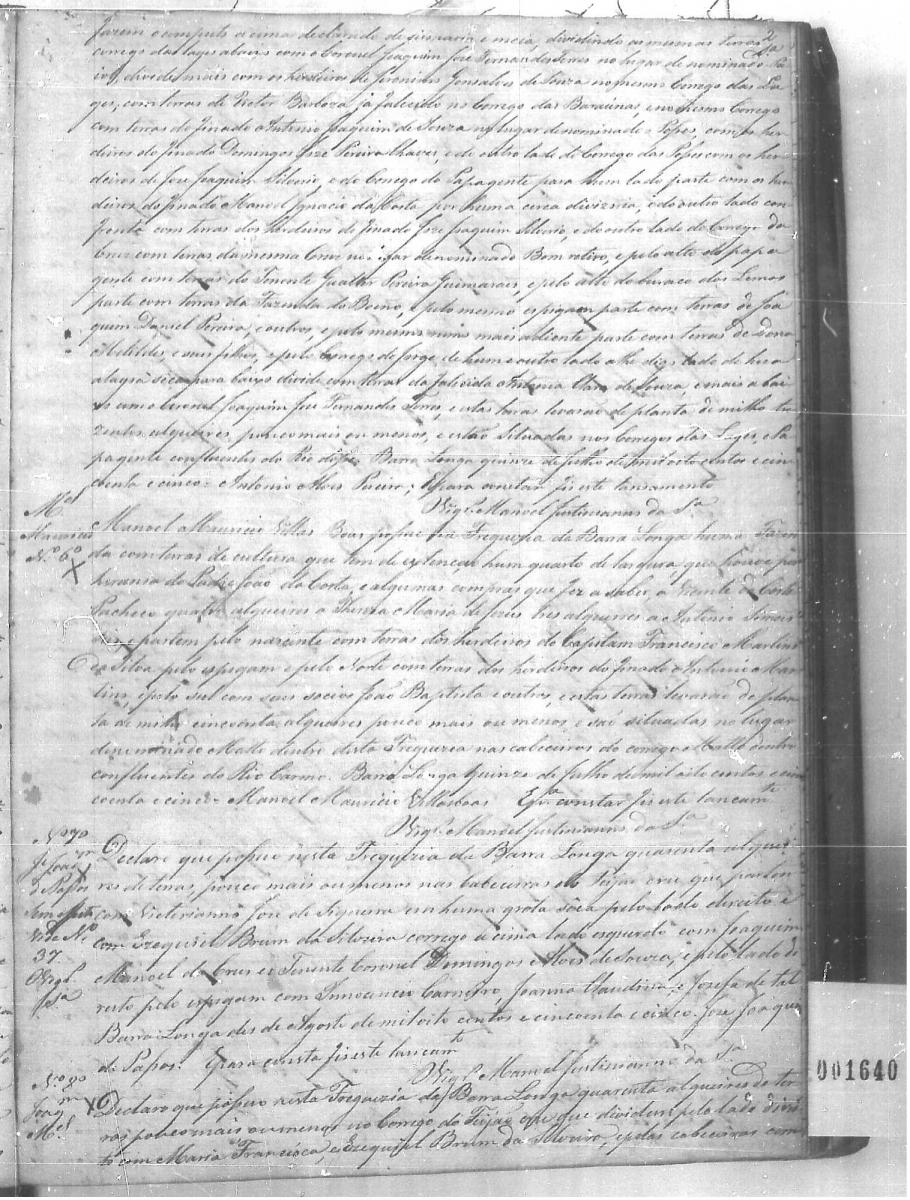 2
fazem o computo a cima declarado de sismaria e meia, dividindo as mesmas terras
corrego das lages abaixo com o Coronel Joaquim Jose Fernandes Torres no lugar denominado
divide mais com os herdeiros de Gonsalves de Souza no mesmo Corrego das La
ges, com terras de Victor Barboza ja falecido no Corrego das e no mesmo Corrego
com terras do finado Antonio Joaquim de Souza no lugar denominado Popes, com os her
deiros do finado Domingos Jose Pereira Chaves, e do outro lado do Corrego das Popes com os her
deiros de Jose Joaquim Silverio, e do Corrego do Papagente para hum lado parte com os her
deiros do finado Manoel Ignacio da Costa por huma cerca divizoria, e do outro lado con
fronta com terras dos herdeiros do finado Jose Joaquim Silverio, e do outro lado do Corrego da
Cruz com terras da mesma Cruz no lugar denominado Bom retiro, e pelo alto do papa
gente com terras do Tenente Gualter Pereira Guimaraes, e pelo alto do buraco dos Lemos
parte com terras da Fazenda do Bueno, e pelo mesmo espigam parte com terras de Joa
quim Daniel Pereira, e outros, e pelo mesmo rumo mais adiente parte com terras de Dona
Matildes, e seus filhos, e pelo Corrego do Jorge, de hum e outro lado
para baixo divide com terras da falecida Antonia Clara de Souza, e mais a bai
xo com o Coronel Joaquim Jose Fernandes Torres, e estas terras levarão de planta de milho tre
zentos alqueires, pouco mais ou menos, e estão Situadas nos Corregos das Lages, e Pa
pagente confluentes do Rio doce. Barra Longa quinze de Julho de mil oito centos e cin
coenta e cinco = Antonio Alves Pereira; E para constar fis este lansamento
Vigr.º Manoel Justinianno da S.ª
M.el
Mauricio
N.º 6º
Manoel Mauricio Villas Boas possue na Freguezia da Barra Longa huma Fazen
da com terras de cultura que tem de extencão hum quarto de largura, que houve por
heransa do Padre João da Costa, e algumas compras que fez a saber, a Vicente da Costa
Pacheco quatro alqueires a Thereza Maria de Jesus tres alqueires a Antonio Simois
dois e partem pelo nascente com terras dos herdeiros do Capitam Francisco Martins
da Silva pelo espigam e pelo Norte com terras dos herdeiros do finado Antonio Mar
tins, e pelo sul com seus socios João Baptista e outros, e estas terras levarão de plan
ta de milho cincoenta alqueires pouco mais ou menos e são situadas no lugar
denominado Matto dentro desta Freguezia nas cabeceiras do corrego Matto dentro
confluentes do Rio Carmo. Barra Longa quinze de Julho de mil oito centos e cin
coenta e cinco = Manoel Mauricio Villasboas E p.ª constar fis este lancam.to
Vigr.º Manoel Justinianno da S.ª
N.º 7º
Je Joaq.m
de Papos
sem effeito
Vide N.º
37.
Vigr.º
S.ª
Declaro que possuo nesta Freguezia da Barra Longa quarenta alquei
res de terras, pouco mais ou menos nas cabeceiras do Feijão cru que partem
com Victorianno Jose de Siqueira em huma grota sêca pelo lado direito e
com Ezequiel Brum da Silveira corrego a cima lado esquerdo com Joaquim
Manoel da Crus e o Tenente Coronel Domingos Alves de Souza, e pelo lado di
reito pelo espigam com Innocencio Carneiro, Joanna Claudina e Josefa de tal
Barra Longa des de Agosto de mil oito centos e cincoenta e cinco. Jose Joaquim
de Papos. E para consta fis este lancam.to
Vigr.º Manoel Justinianno da S.ª
N.º 8º
Joaq.m
M.el
Declaro que possuo nesta Freguezia da Barra Longa quarenta alqueires de ter
ras pouco mais ou menos no Corrego do Feijão cru que dividem pelo lado direi
to com Maria Francisca, e Ezequiel Brum da Silveira, e pelas cabeceiras com
001640